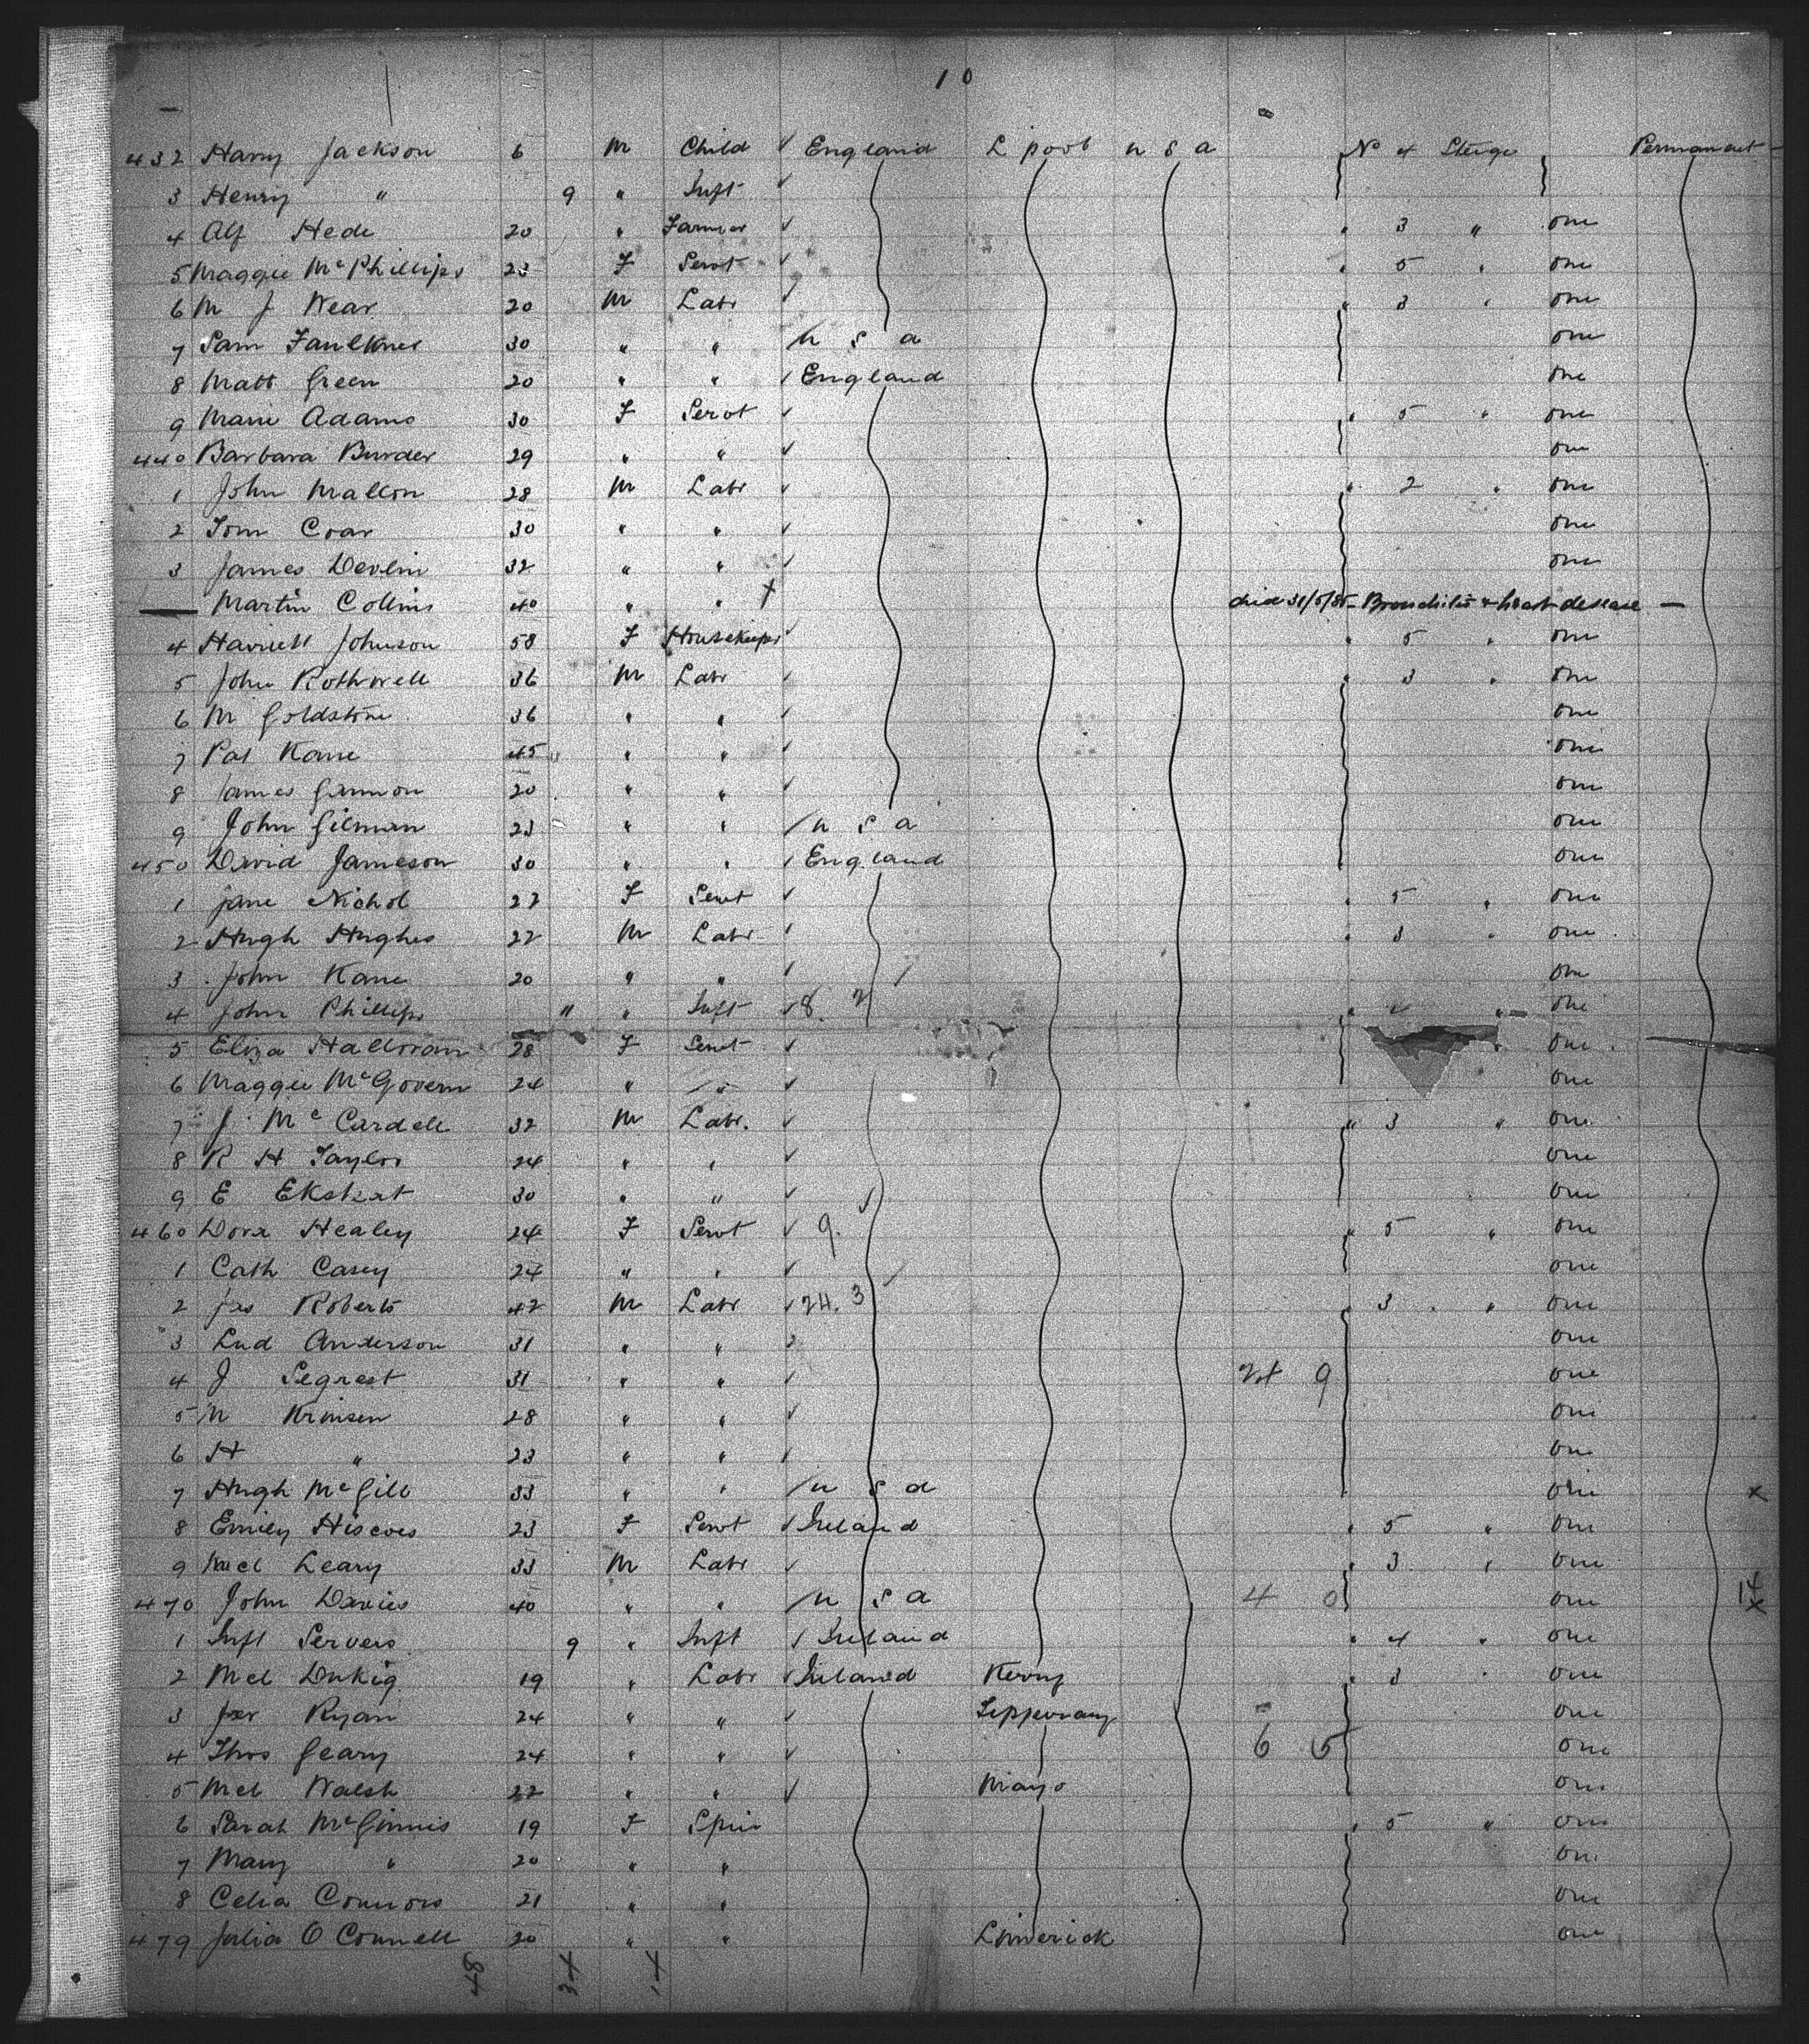 10
432 Harry Jackson 6 M Child ✓ England L pool u s a No 4 Steige Permanent
3 Henry " 9 " Inft ✓
4 Alf Hede 20 " Farmer ✓ " 3 " one
5 Maggie McPhillips 23 F Servt ✓ " 5 " one
6 M J Wear 20 M Labr ✓ " 3 " one
7 Sam Faulkner 30 " " ✓ u s a one
8 Matt Green 20 " " ✓ England one
9 Marie Adams 30 F Servt ✓ " 5 " one
440 Barbara Burder 29 " " ✓ one
1 John Mallon 28 M Labr ✓ " 2 " one
2 Tom Coar 30 " " ✓ one
3 James Devlin 32 " " ✓ one
— Martin Collins 40 " " X died 31/5/85 – Bronchitis & heart desease —
4 Harriett Johnson 58 F Housekeeper ✓ " 5 " one
5 John Rothwell 36 M Labr ✓ " 3 " one
6 M Goldstone 36 " " ✓ one
7 Pat Kane 45 " " ✓ one
8 James Gannon 20 " " ✓ one
9 John Gilman 23 " " ✓ u s a one
450 David Jameson 30 " " ✓ England one
1 Jane Nichol 22 F Servt ✓ " 5 " one
2 Hugh Hughes 22 M Labr ✓ " 3 " one
3 John Kane 20 " " ✓ one
4 John Phillips " " Inft ✓ 8. 2 " 4 " one
5 Eliza Halloran 28 F Servt ✓ " one
6 Maggie McGovern 24 " " ✓ one
7 J. McCardell 32 M Labr. ✓ " 3 " one
8 R H Taylor 24 " " ✓ one
9 E Ekstrat 30 " " ✓ one
460 Dora Healey 24 F Servt ✓ 9. " 5 " one
1 Cath Casey 24 " " ✓ one
2 Jas Roberts 42 M Labr ✓ 24. 3 " 3 " one
3 Lud Anderson 31 " " ✓ one
4 J Segrest 31 " " ✓ 24 9 one
5 M Krinsen 28 " " ✓ one
6 H " 23 " " ✓ one
7 Hugh McGill 33 " " ✓ u s a one x
8 Emily Hiscoes 23 F Servt ✓ Ireland " 5 " one
9 Mcl Leary 33 M Labr ✓ " 3 " one
470 John Davies 40 " " ✓ u s a 4 0 one 14 x
1 Inft Servers 9 " Inft ✓ Ireland " 4 " one
2 Mcl Dukig 19 " Labr ✓ Ireland Kerry " 3 " one
3 Jer Ryan 24 " " ✓ Tipperary one
4 Thos Geary 24 " " ✓ 6 5 one
5 Mcl Walsh 22 " " ✓ Mayo one
6 Sarah McGinnis 19 F Spin " 5 " one
7 Mary " 20 " " one
8 Celia Connors 21 " " one
479 Julia O Connell 20 " " Limerick one
48 34 14